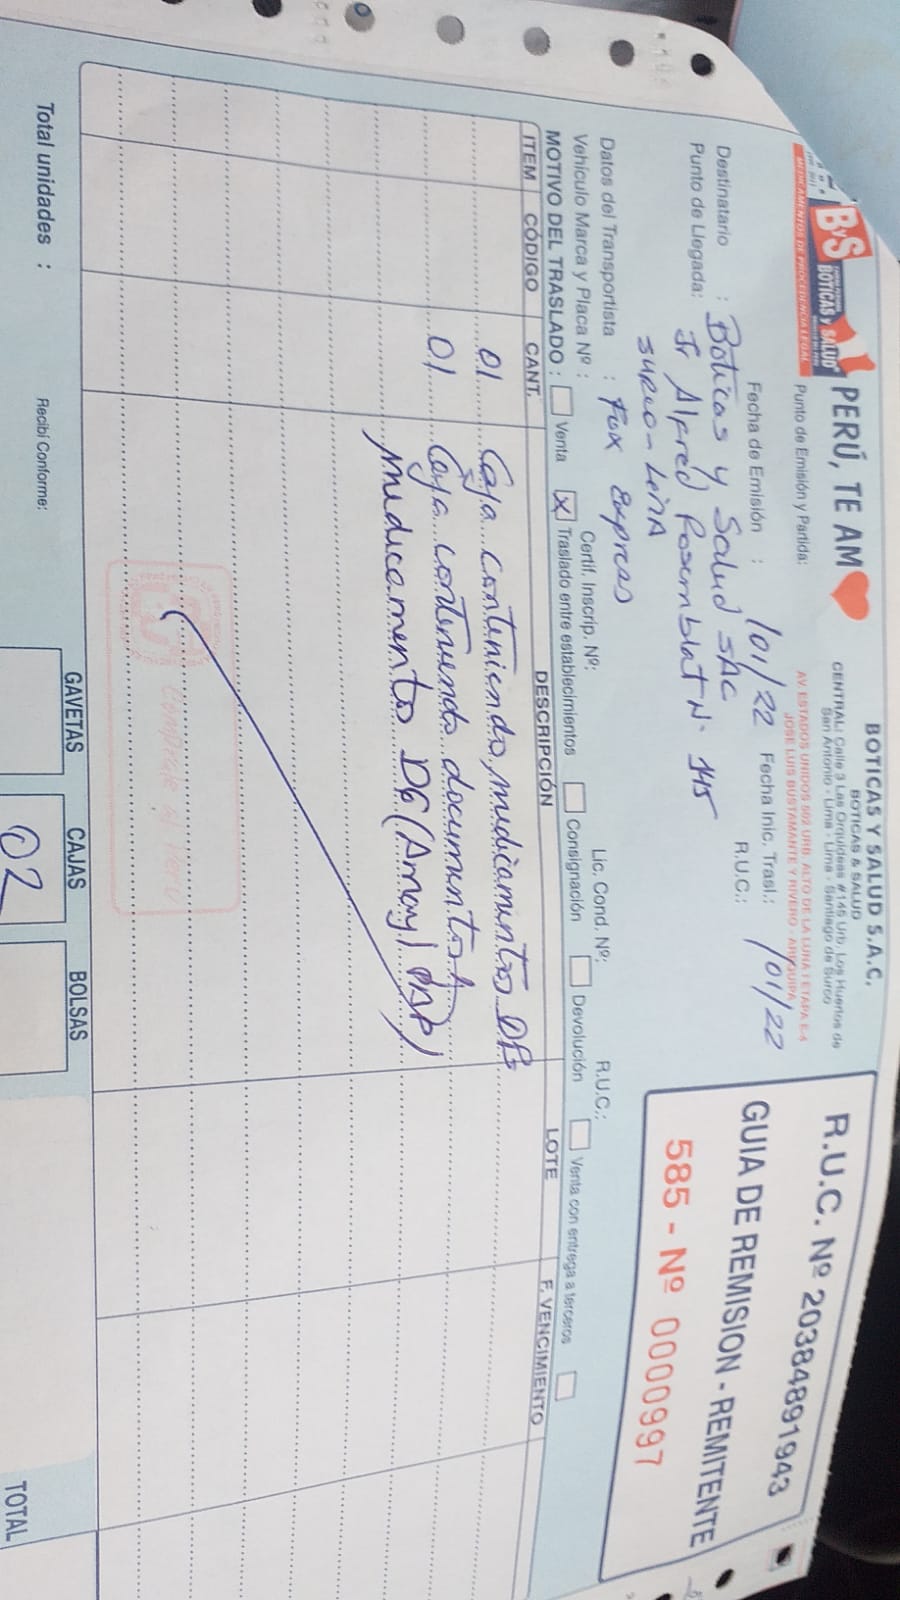 BOTICAS Y SALUD S.A.C.
BOTICAS & SALUD
CENTRAL: Calle 3 Las Orquideas #145 Urb. Los Huertos de
San Antonio - Lima - Lima - Santiago de Surco
PERÚ, TE AM
ByS BOTICAS y SALUD
MEDICAMENTOS DE PROCEDENCIA LEGAL
Punto de Emisión y Partida:
AV. ESTADOS UNIDOS 502 URB. ALTO DE LA LUNA I ETAPA E-4
JOSE LUIS BUSTAMANTE Y RIVERO - AREQUIPA
R.U.C. Nº 20384891943
GUIA DE REMISION - REMITENTE
585 - Nº 0000997
Fecha de Emisión : /01/22 Fecha Inic. Trasl.: /01/22
Destinatario : Boticas y Salud SAC R.U.C.:
Punto de Llegada: Jr Alfred Rosemblat Nº 145
Surco - Lima
Datos del Transportista : Fox Expres R.U.C.:
Vehículo Marca y Placa Nº : Certif. Inscrip. Nº: Lic. Cond. Nº:
MOTIVO DEL TRASLADO : Venta X Traslado entre establecimientos Consignación Devolución Venta con entrega a terceros
ITEM CÓDIGO CANT. DESCRIPCIÓN LOTE F. VENCIMIENTO
01 Caja conteniendo medicamentos
01 Caja conteniendo documentos
medicamentos
GAVETAS CAJAS BOLSAS
Total unidades : Recibí Conforme: 02 TOTAL